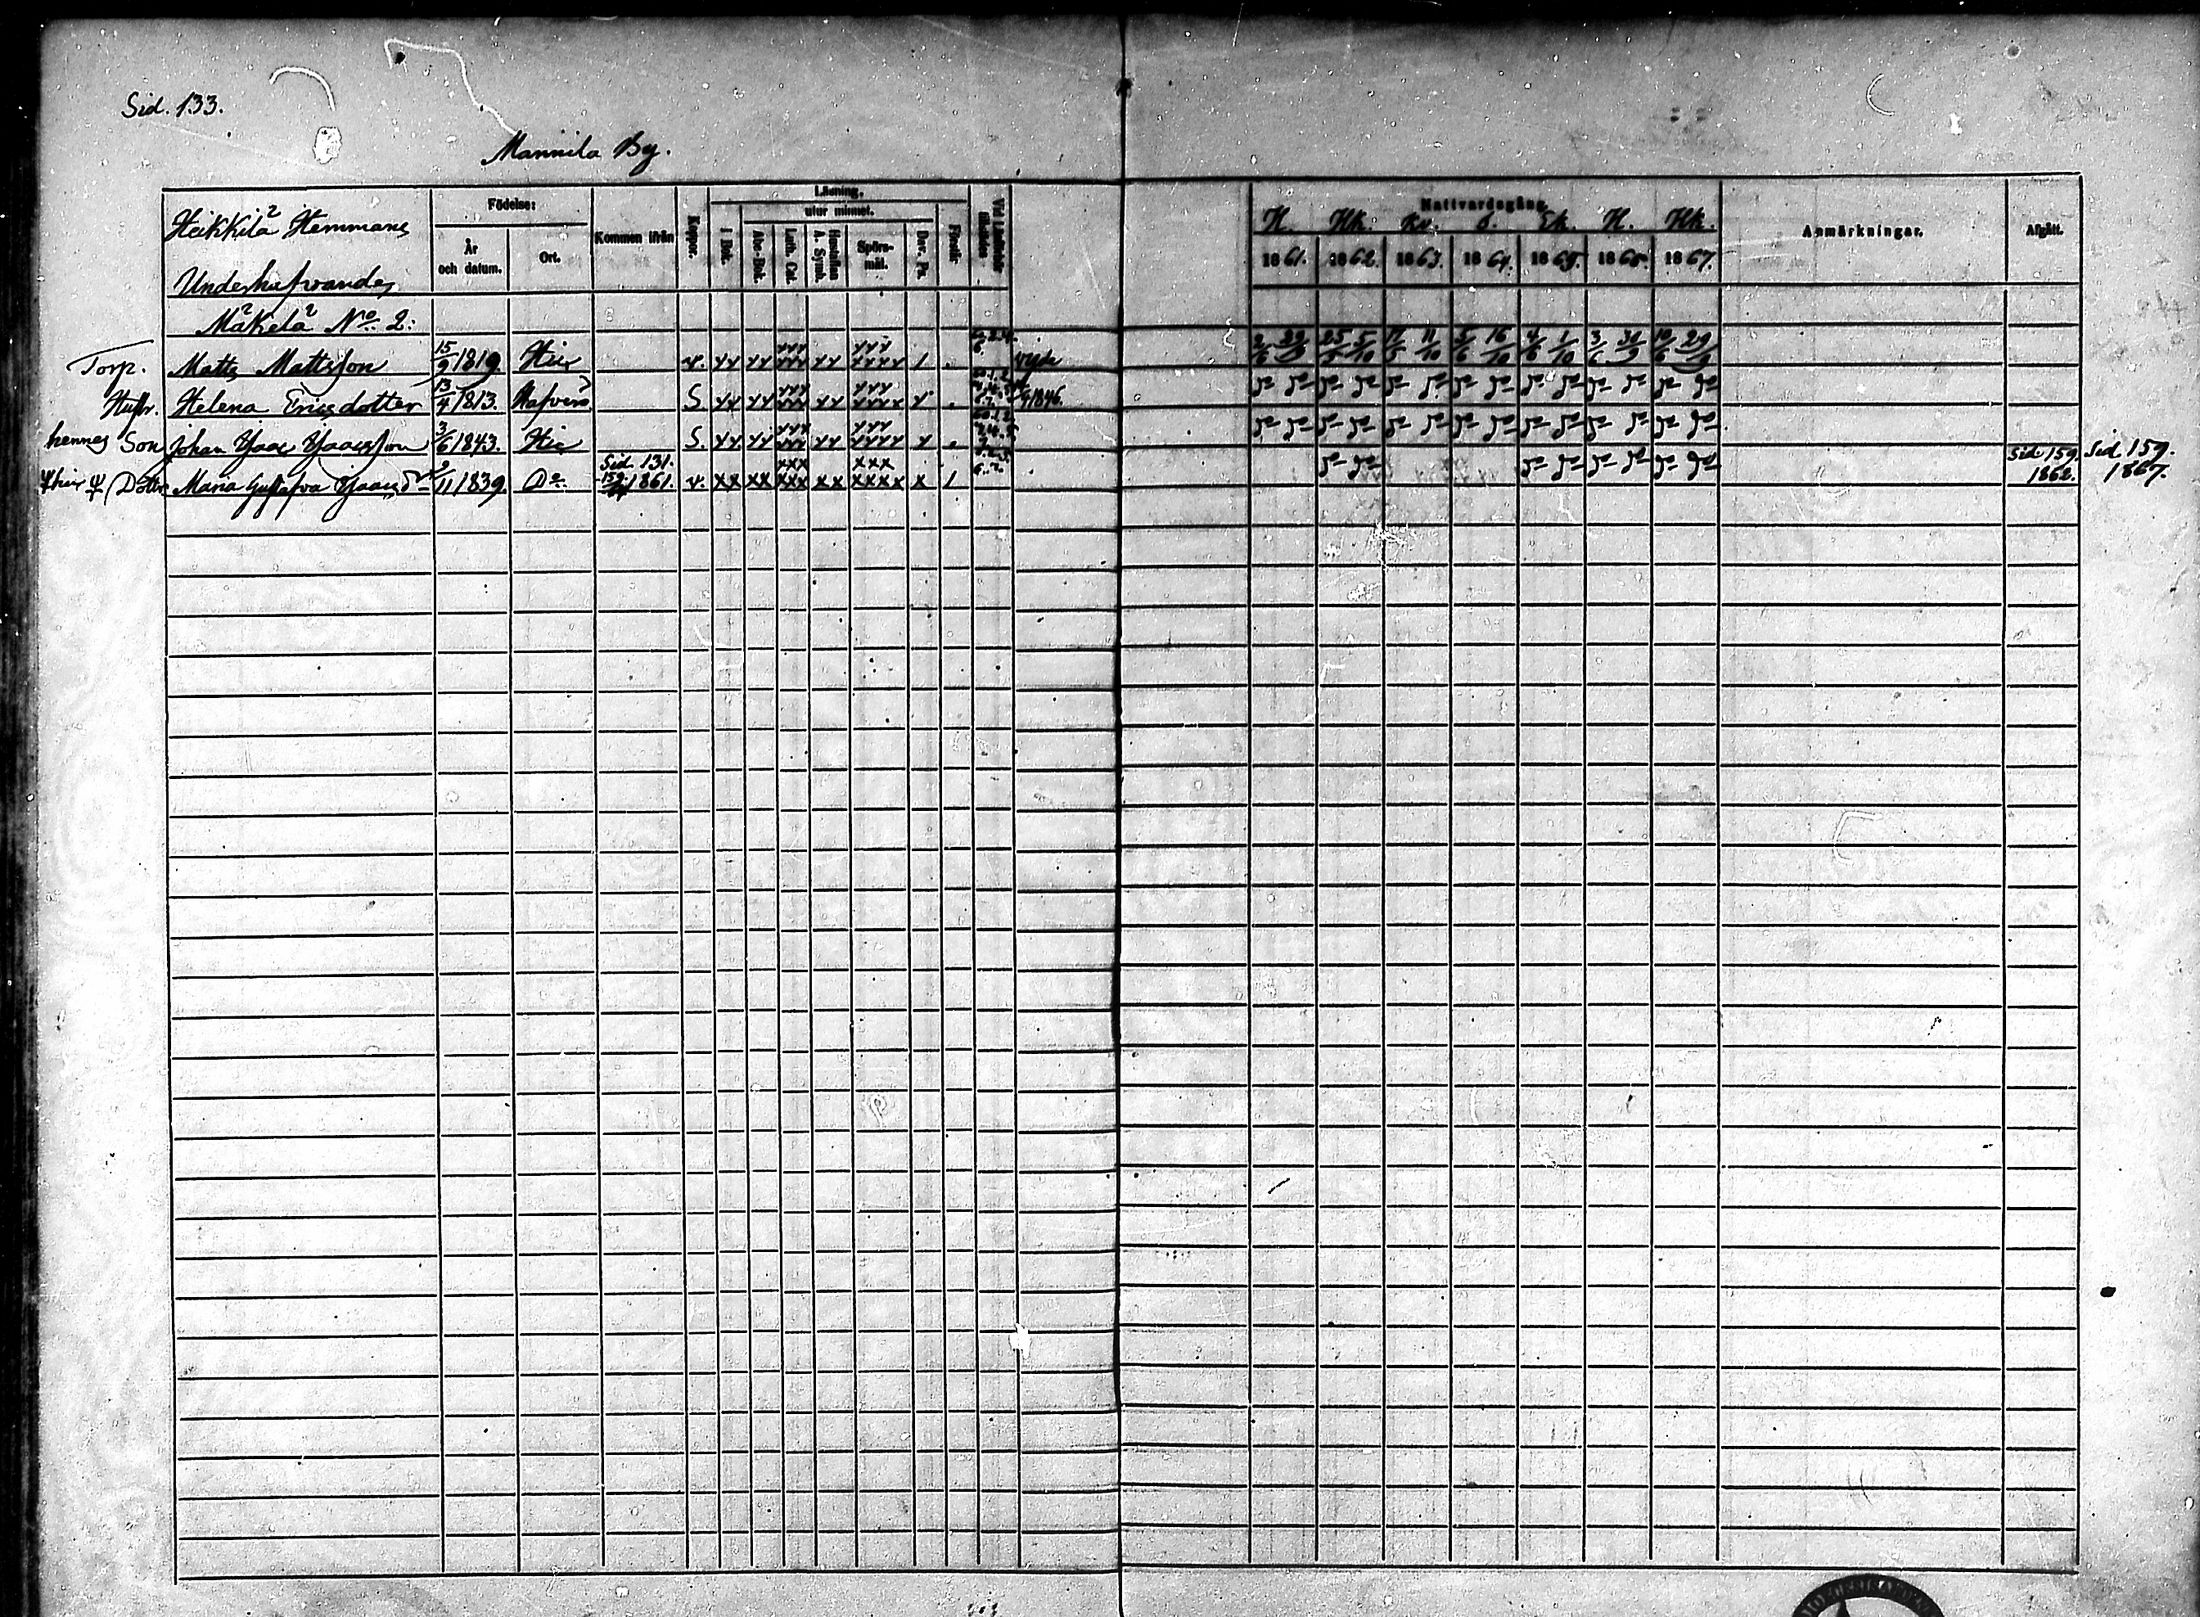 Sid. 133.
Mannila By.
Heikkilä Hemmans
Underhafvande,
Mäkelä No. 2:
Födelse:
År och datum.
Ort.
Kommen ifrån
Koppor.
Läsning.
utur minnet.
I Bok.
Abc-Bok.
Luth. Cat.
Hustaflan A. Symb.
Spörs-mål.
Dav. Ps.
Förstår
Nattvardsgång.
H. Hk. Kv. S. Ek. H. Hk.
1861. 1862. 1863. 1864. 1865. 1866. 1867.
Anmärkningar.
Afgått.
2/6 25/5 5/10 11/10 5/6 16/10 4/6 1/10 3/6 10/6 29/9
Torp. Matts Mattsson 15/9 1819. Här v. xx xx xxx xxx xx xxx xxxx 1
Hustr. Helena Ericsdotter 13/4 1813. S. xx xx xxx xxx xx xxx xxxx x 1846.
hennes Son Johan Isaac Isaacsson 3/6 1843. Här S. xx xx xxx xxx xx xxx xxxx x Sid 159. 1862. Sid 159. 1867.
Dotter Maria Gustafva Isaacs Dr 11 1839. Do. Sid. 131. 1861. v. xx xx xxx xxx xx xxx xxxx x 1